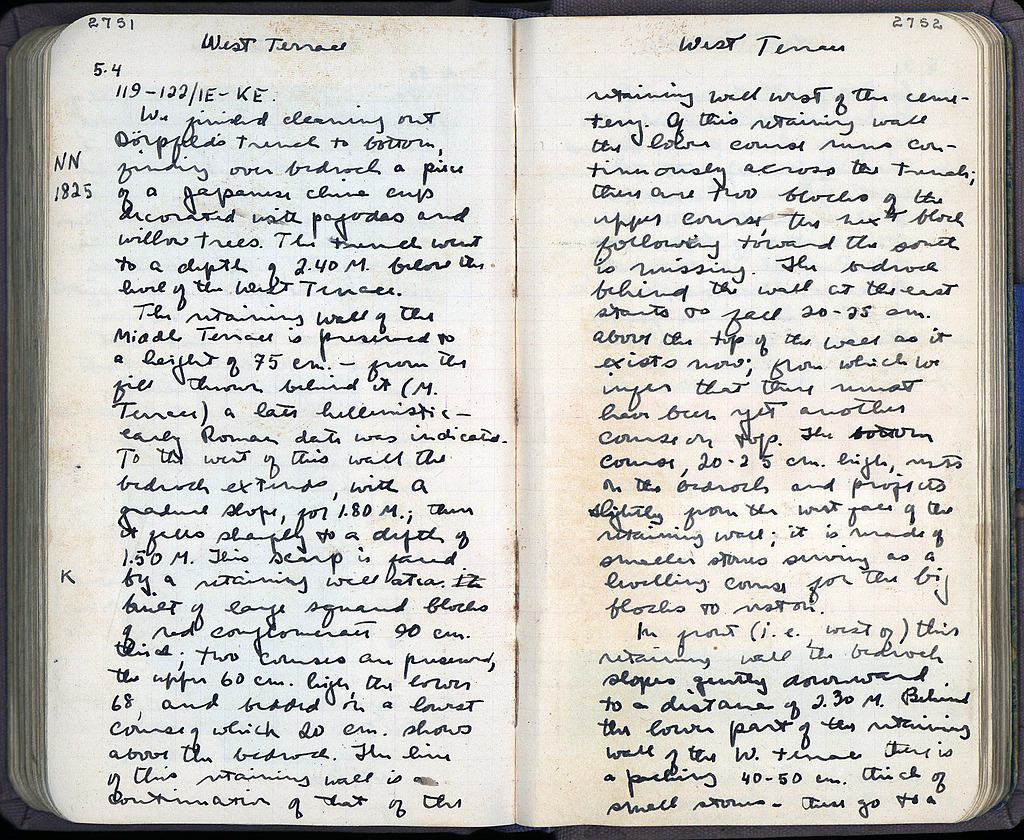 2751
West Terrace
5.4
119-122/IE-KE.
We finished cleaning out
Dörpfeld's trench to bottom,
NN
1825
finding over bedrock a piece
of a Japanese china cup
decorated with pagodas and
willow trees. The trench went
to a depth of 2.40 M. below the
level of the West Terrace.
The retaining wall of the
Middle Terrace is preserved to
a height of 75 cm. – from the
fill thrown behind it (M.
Terrace) a late hellenistic –
early Roman date was indicated.
To the west of this wall the
bedrock extends, with a
gradual slope, for 1.80 M.; then
it falls sharply to a depth of
1.50 M. This scarp is faced
K
by a retaining wall
built of large squared blocks
of red conglomerate 90 cm.
thick; two courses are preserved,
the upper 60 cm. high, the lower
68, and bedded on a lowest
course of which 20 cm. shows
above the bedrock. The line
of this retaining wall is a
continuation of that of the
2752
West Terrace
retaining wall west of the ceme-
tery. Of this retaining wall
the lower course runs con-
tinuously across the trench;
there are two blocks of the
upper course, the next block
following toward the south
is missing. The bedrock
behind the wall at the east
starts to fall 20-25 cm.
above the top of the wall as it
exists now; from which we
infer that there must
have been yet another
course on top. The bottom
course, 20-25 cm. high, rests
on the bedrock and projects
slightly from the west face of the
retaining wall; it is made of
smaller stones serving as a
levelling course for the big
blocks to rest on.
In front (i.e. west of) this
retaining wall the bedrock
slopes gently downward
to a distance of 2.30 M. Behind
the lower part of the retaining
wall of the W. Terrace there is
a packing 40-50 cm. thick of
small stones – these go to a